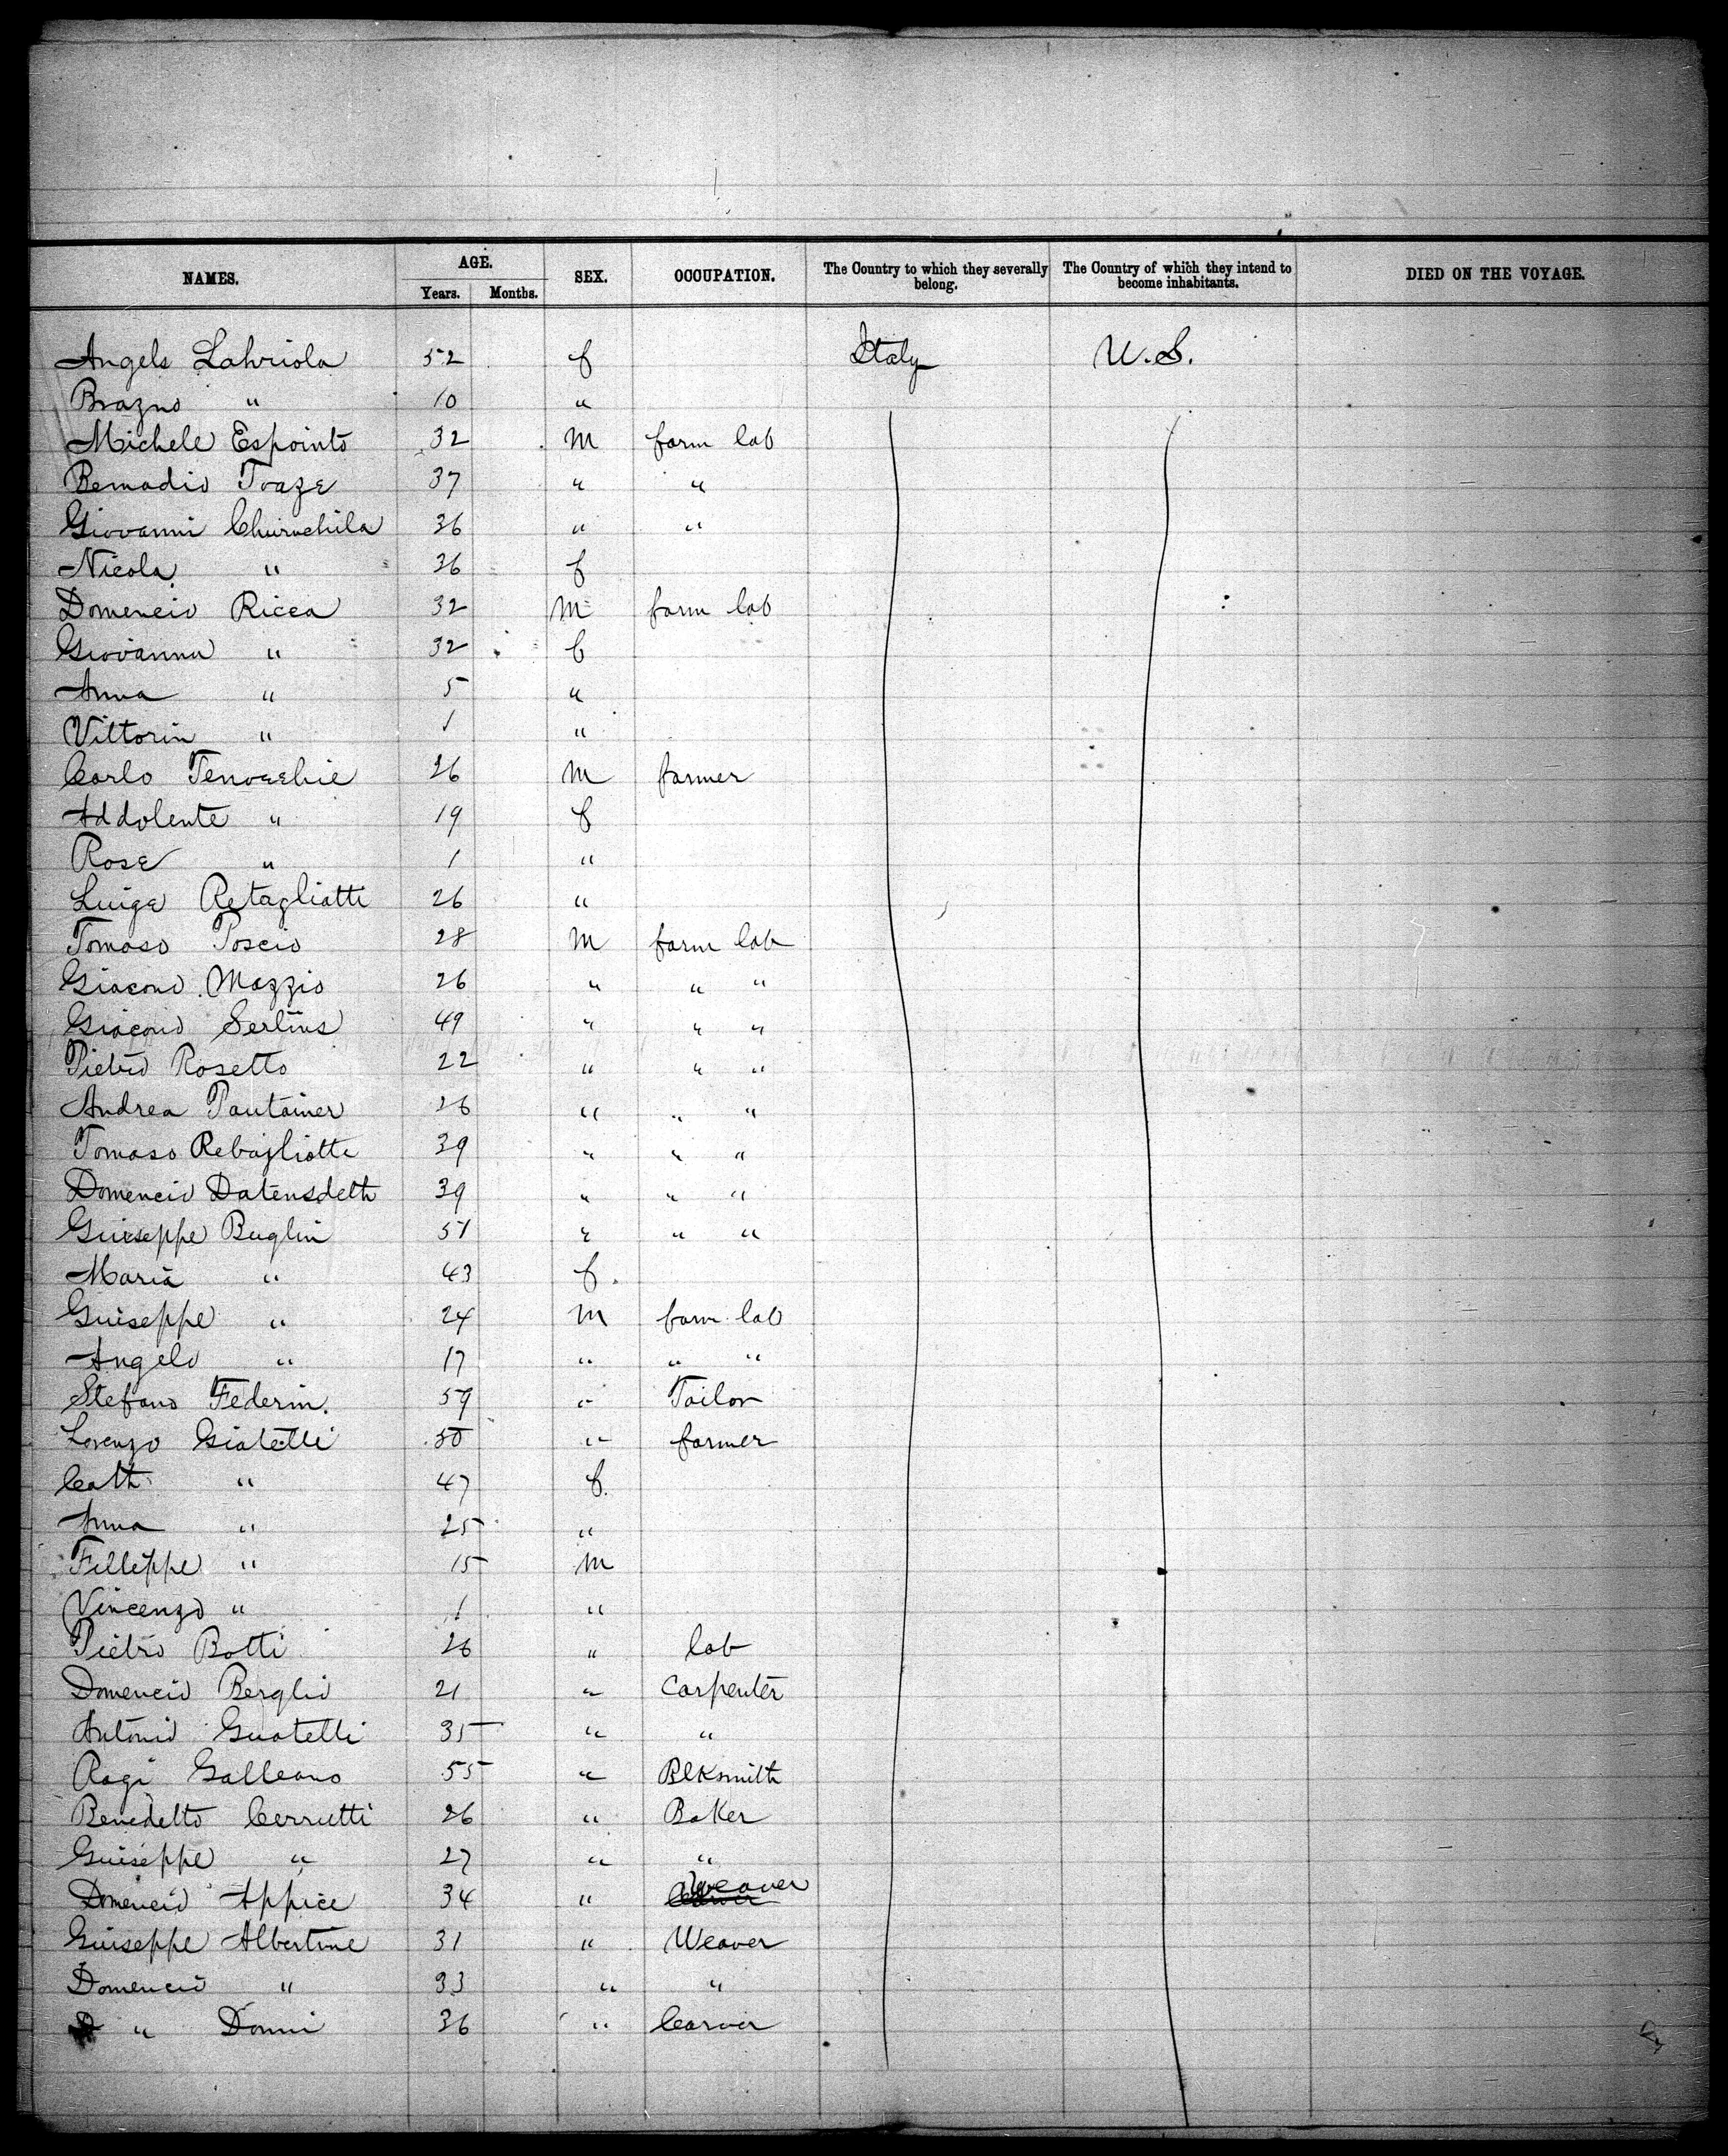 NAMES. AGE. SEX. OCCUPATION. The Country to which they severally belong. The Country of which they intend to become inhabitants. DIED ON THE VOYAGE.
Years. Months.
Angels Lahriola 52 f Italy U.S.
Brazno " 10 "
Michele Espointo 32 M farm lab
Bernadio Traze 37 " "
Giovanni Churuchila 36 " "
Nicola " 36 f
Domencio Ricca 32 M farm lab
Giovanna " 32 f
Anna " 5 "
Vittorin " 1 "
Carlo 26 M farmer
Addolente " 19 f
Rose " 1 "
Luige Retagliatti 26 "
Tomaso Poscio 28 M farm lab
Giacono Mazzio 26 " " "
Giacono Serlins 49 " " "
Pietro Rosetto 22 " " "
Andrea Pautainer 26 " " "
Tomaso Rebagliotte 39 " " "
Domencio Datensdelth 39 " " "
Guiseppe Buglin 51 " " "
Maria " 43 f.
Guiseppe " 24 M farm lab
Angelo " 17 " " "
Stefano Federin. 59 " Tailor
Lorenzo Giatelli 50 " farmer
Cath " 47 f.
Anna " 25 "
Fillippe " 15 M
Vincenzo " 1 "
Pietro Botti 26 " lab
Domencio Berglio 21 " Carpenter
Antonio Guatelli 35 " "
Ragi Galleano 55 " Blksmith
Benedetto Cerrutti 26 " Baker
Guiseppe " 27 " "
Domencio Appice 34 " Weaver
Guiseppe Albertine 31 " Weaver
Domencio " 33 " "
" Donni 36 " Carver